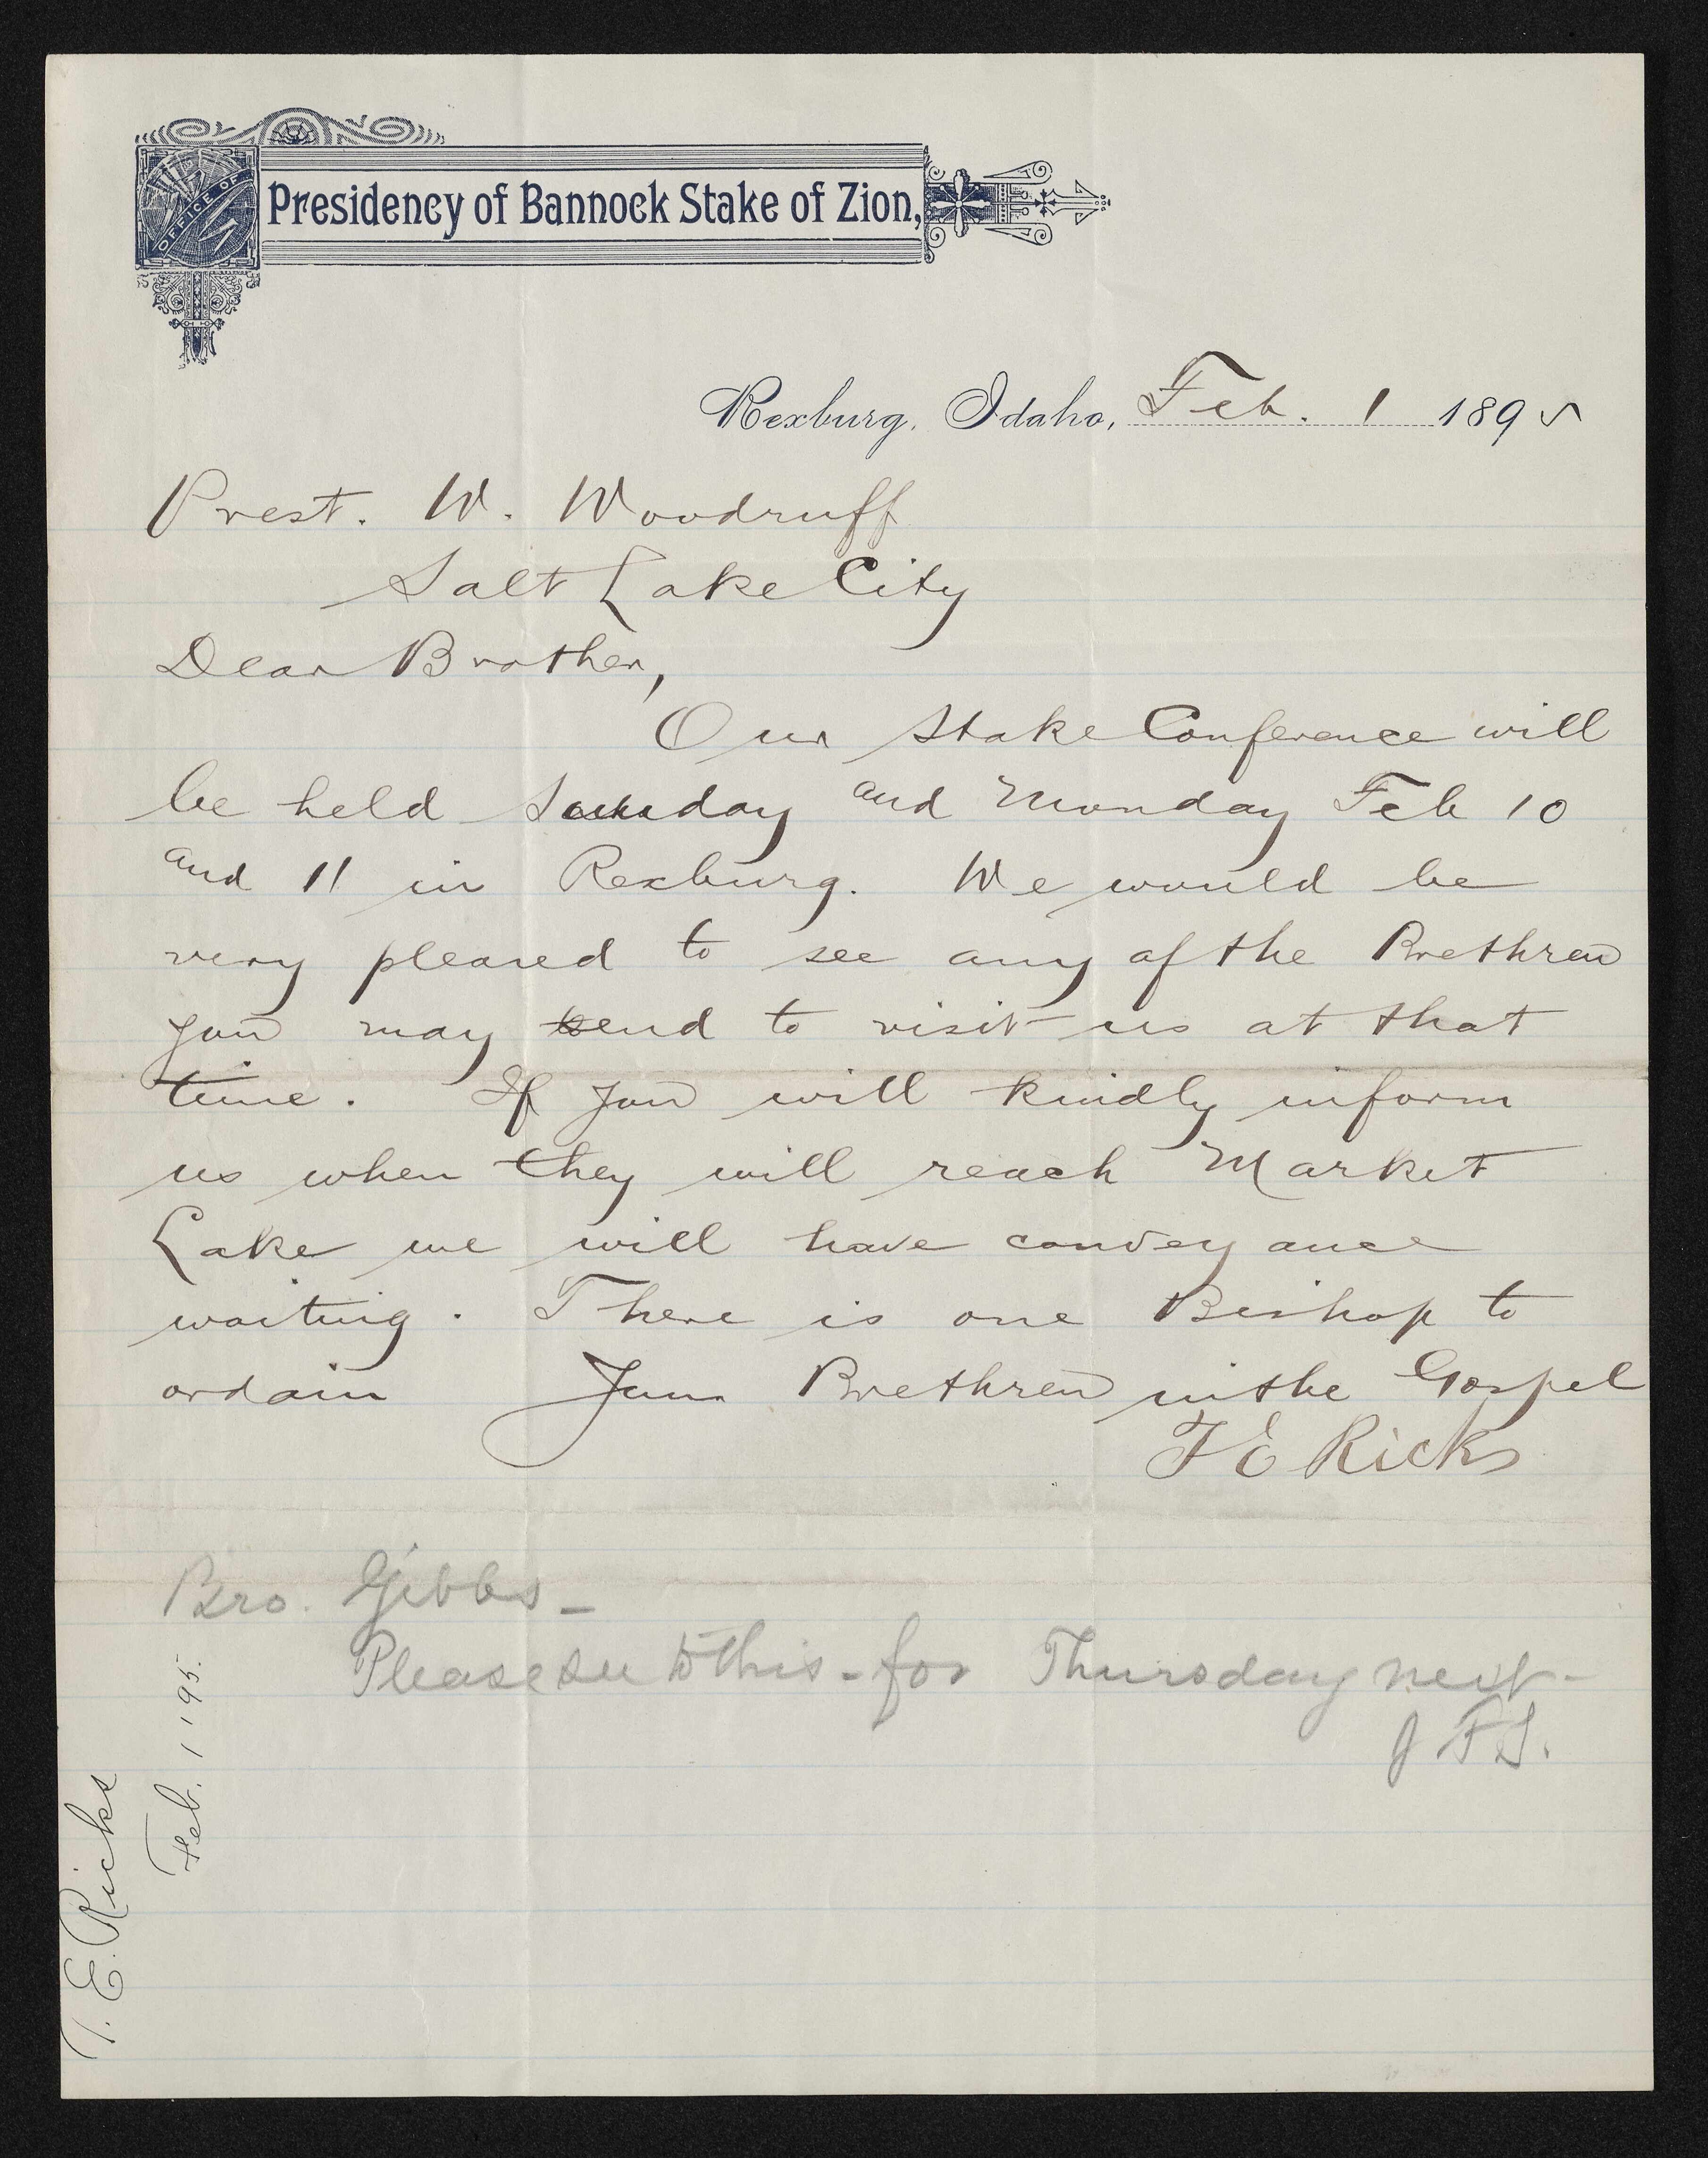 OFFICE OF
Presidency of Bannock Stake of Zion,
Rexburg, Idaho, Feb. 1 1895
Prest. W. Woodruff
Salt Lake City
Dear Brother,
Our Stake Conference will
be held Sunday and Monday Feb 10
and 11 in Rexburg. We would be
very pleased to see any of the Brethren
you may send to visit us at that
time. If you will kindly inform
us when they will reach Market
Lake we will have conveyance
waiting. There is one Bishop to
ordain Your Brethren in the Gospel
T E Ricks
Bro. Gibbs_
Please see to this - for Thursday next -
J F S.
T. E. Ricks
Feb. 1 '95.